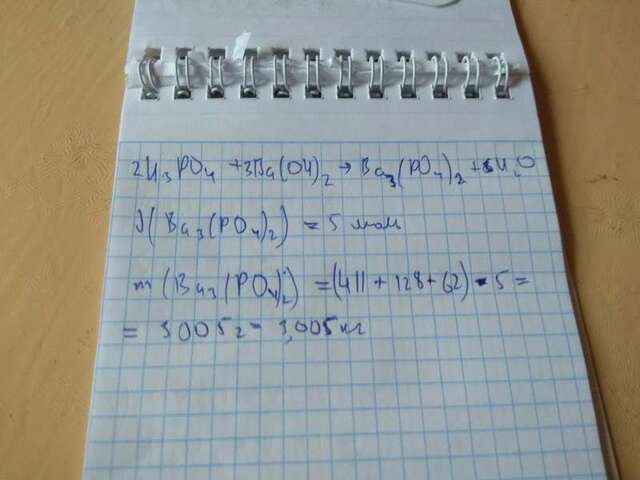 2H₃PO₄ + 3Ba(OH)₂ → Ba₃(PO₄)₂ + 6H₂O
ν(Ba₃(PO₄)₂) = 5 моль
m(Ba₃(PO₄)₂) = (411 + 128 + 62) · 5 =
= 3005г = 3,005кг